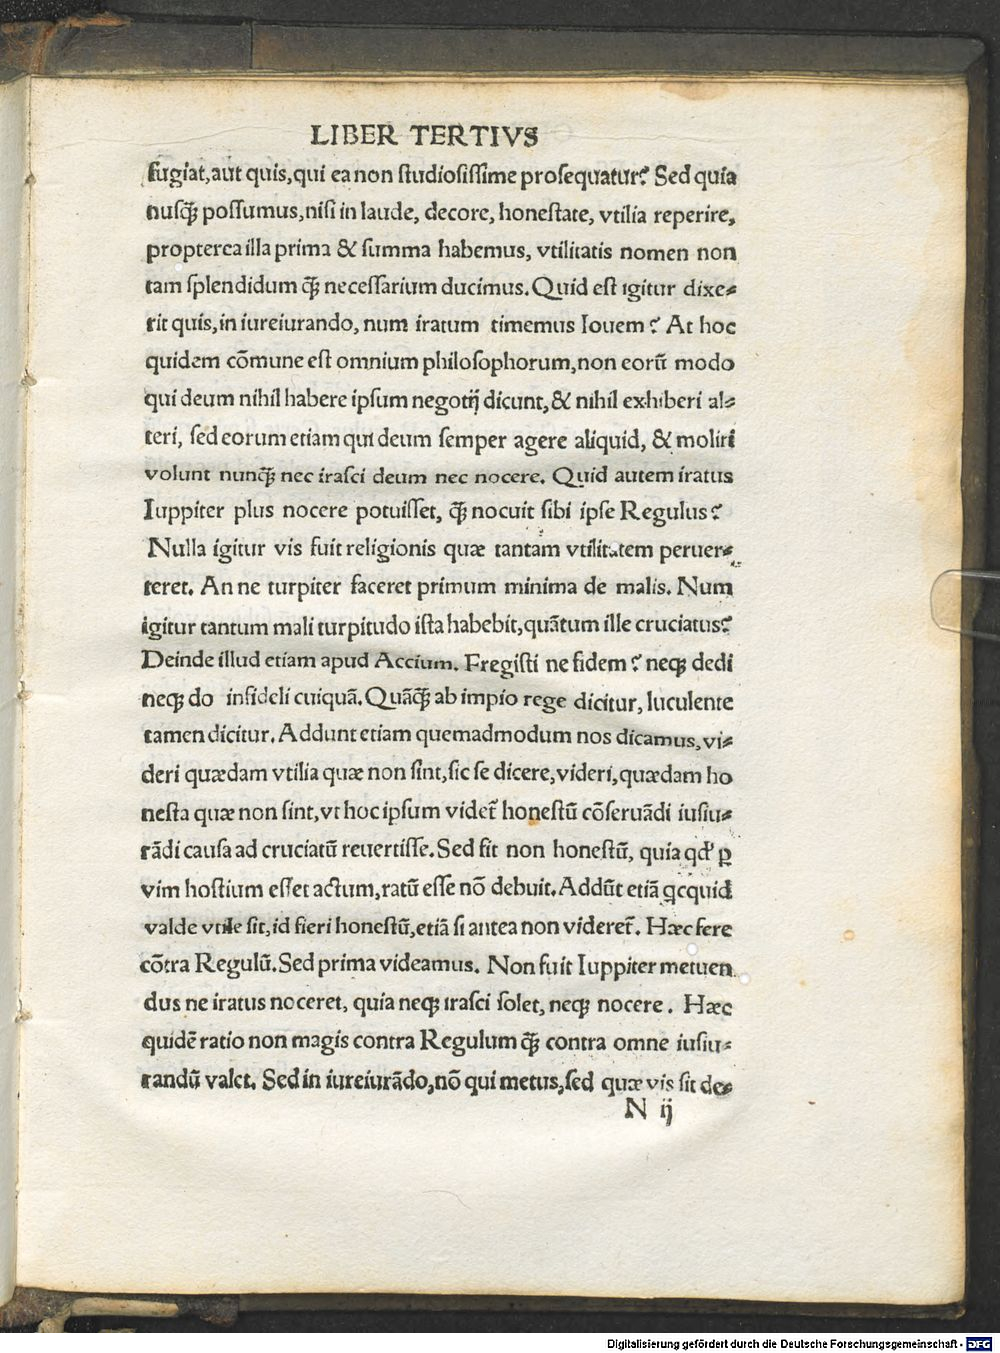 LIBER TERTIVS
fugiat,aut quis,qui ea non ſtudioſiſſime proſequatur? Sed quia
nuſꝗ̃ poſſumus,niſi in laude, decore, honeſtate, vtilia reperire,
propterea illa prima & ſumma habemus, vtilitatis nomen non
tam ſplendidum ꝗ̃ neceſſarium ducimus. Quid eſt igitur dixe⸗
rit quis,in iureiurando, num iratum timemus Iouem? At hoc
quidem cõmune eſt omnium philoſophorum,non eorũ modo
qui deum nihil habere ipſum negotij dicunt,& nihil exhiberi al⸗
teri, ſed eorum etiam qui deum ſemper agere aliquid, & moliri
volunt nunꝗ̃ nec iraſci deum nec nocere. Quid autem iratus
Iuppiter plus nocere potuiſſet, ꝗ̃ nocuit ſibi ipſe Regulus?
Nulla igitur vis fuit religionis quæ tantam vtilitatem peruer⸗
teret. An ne turpiter faceret primum minima de malis. Num
igitur tantum mali turpitudo iſta habebit,quãtum ille cruciatus?
Deinde illud etiam apud Accium. Fregiſti ne fidem? neqꝫ dedi
neqꝫ do infideli cuiquã. Quãꝗ̃ ab impio rege dicitur, luculente
tamen dicitur. Addunt etiam quemadmodum nos dicamus,vi⸗
deri quædam vtilia quæ non ſint,ſic ſe dicere,videri,quædam ho
neſta quæ non ſint,vt hoc ipſum videt̃ honeſtũ cõſeruãdi iuſiu⸗
rãdi cauſa ad cruciatũ reuertiſſe. Sed fit non honeſtũ, quia qd̛ ꝑ
vim hoſtium eſſet actum,ratũ eſſe nõ debuit. Addũt etiã qcquid
valde vtile ſit,id fieri honeſtũ,etiã ſi antea non videret̃. Hæc fere
cõtra Regulũ. Sed prima videamus. Non fuit Iuppiter metuen
dus ne iratus noceret, quia neqꝫ iraſci ſolet, neqꝫ nocere. Hæc
quidẽ ratio non magis contra Regulum ꝗ̃ contra omne iuſiu⸗
randũ valet. Sed in iureiurãdo,nõ qui metus,ſed quæ vis ſit de⸗
N ij
Digitalisierung gefördert durch die Deutsche Forschungsgemeinschaft - DFG